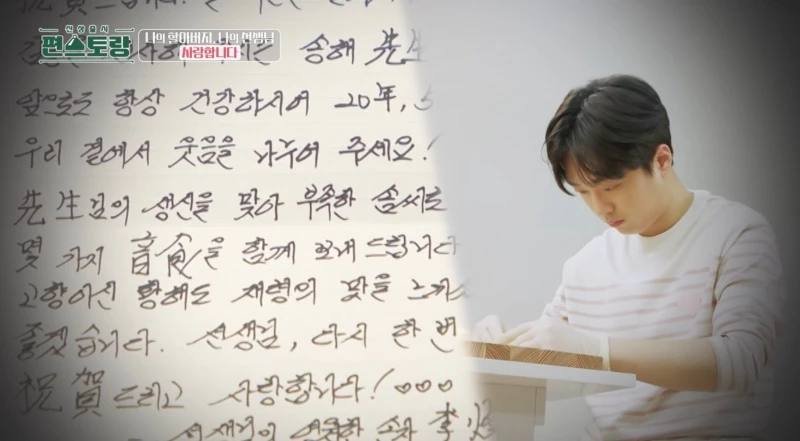 신상출시
편스토랑
나의 할아버지, 나의 선생님
사랑합니다
송해 先生
앞으로도 항상 건강하시어 20年,
우리 곁에서 웃음을 나누어 주세요!
先生님의 생신을 맞아 부족한 솜씨로
몇 가지 音食을 함께 보내드립니다
고향이신 황해도 재령의 맛을
좋겠습니다. 선생님, 다시 한 번
祝賀드리고 사랑합니다! ♡♡♡
선생님의 영원한 손자 李